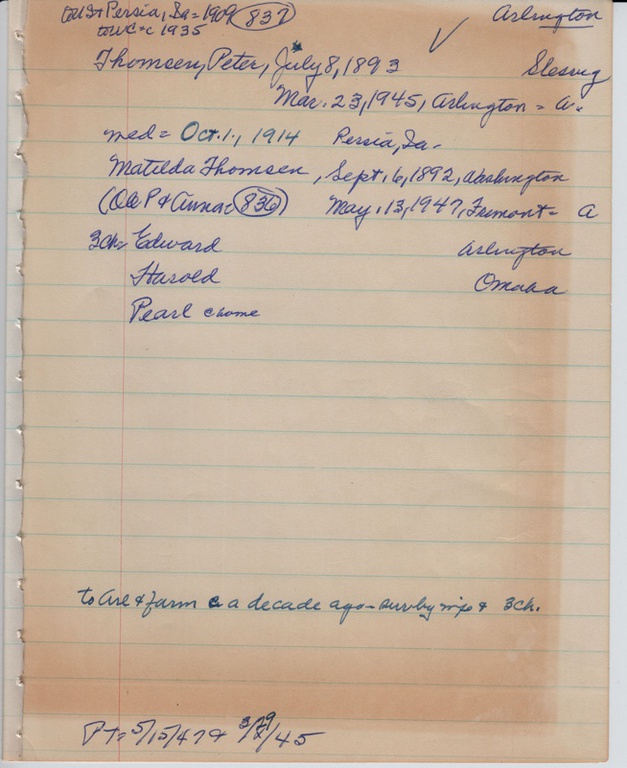 to US + Persia, Ia = 1909 837 Arlington
to WC = c 1935
Thomsen, Peter, July 8, 1893 Slesvig
Mar. 23, 1945, Arlington = A.
med = Oct. 1, 1914 Persia, Ia -
Matilda Thomsen, Sept. 6, 1892, Washington
(Ole P & Anna = 836) May, 13, 1947, Fremont = A
3ch = Edward Arlington
Harold Omaha
Pearl c home
to Arl & farm c a decade ago - surv by wife & 3ch.
PT = 5/15/47 & 3/29/45